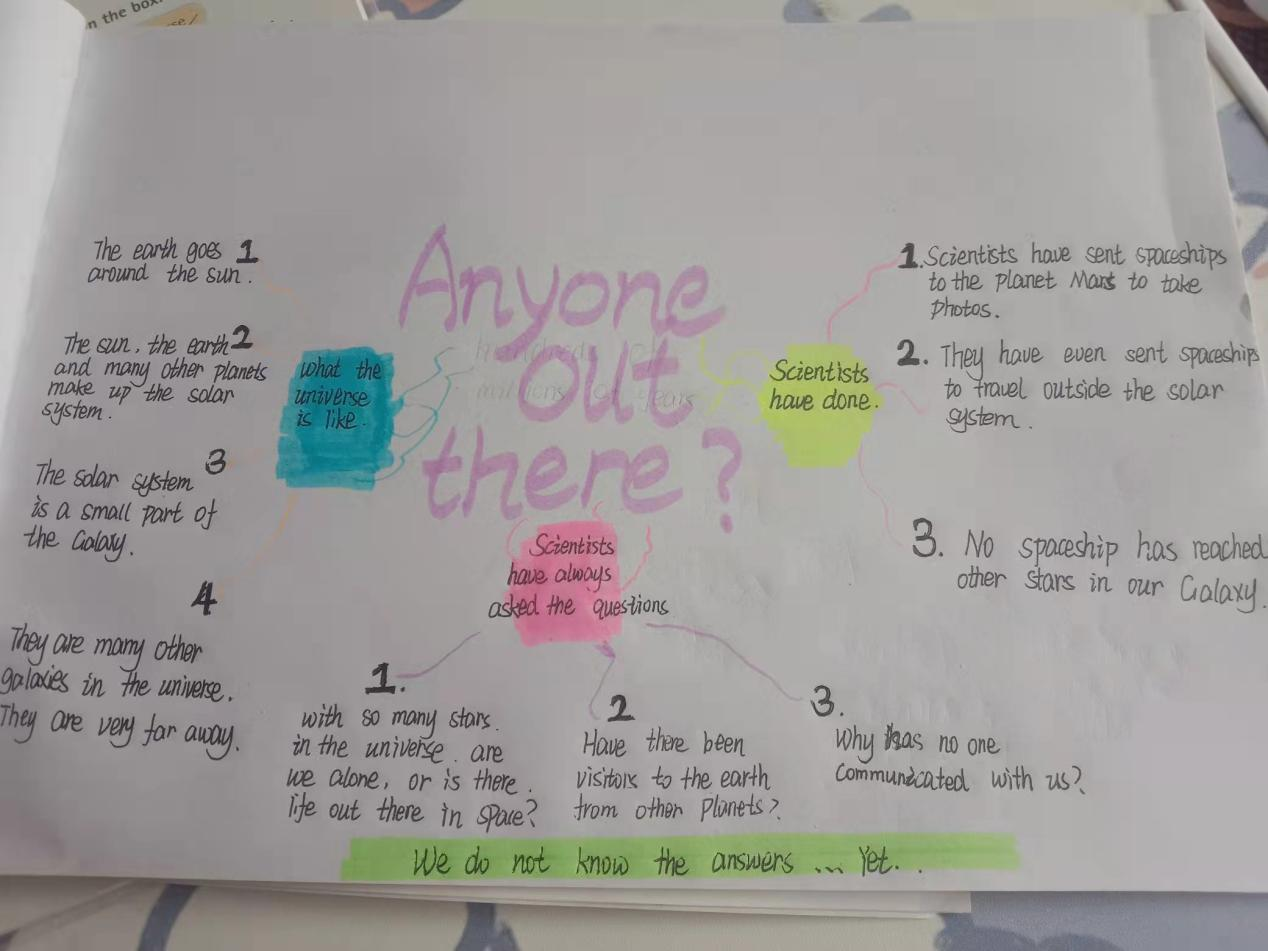 n the box.
Anyone
out
there?
what the
universe
is like.
The earth goes 1
around the sun.
The sun, the earth 2
and many other planets
make up the solar
system.
3
The solar system
is a small part of
the Galaxy.
4
They are many other
galaxies in the universe.
They are very far away.
Scientists
have done.
1. Scientists have sent spaceships
to the planet Mars to take
photos.
2. They have even sent spaceships
to travel outside the solar
system.
3. No spaceship has reached
other stars in our Galaxy.
Scientists
have always
asked the questions
1.
with so many stars.
in the universe. are
we alone, or is there.
life out there in space?
2
Have there been
visitors to the earth
from other planets?
3.
Why has no one
communicated with us?
We do not know the answers ... Yet..